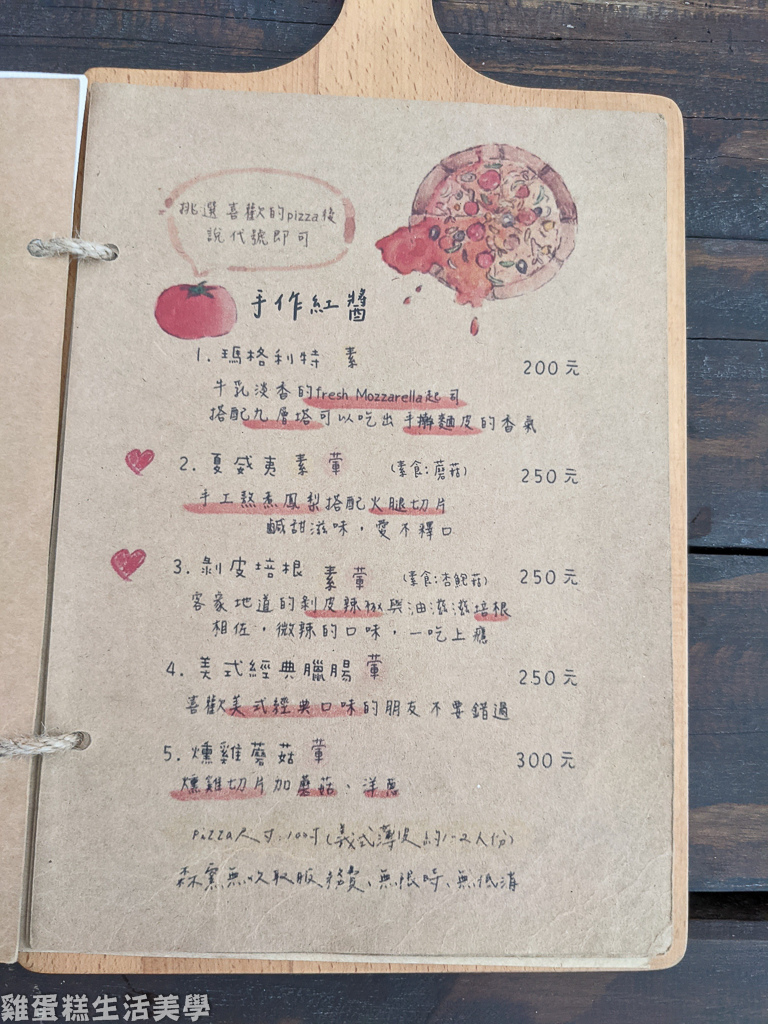 挑選喜歡的pizza後
說代號即可
手作紅醬
1. 瑪格利特 素 200元
牛乳淡香的fresh Mozzarella起司
搭配九層塔可以吃出手擀麵皮的香氣
2. 夏威夷 素 葷 (素食:蘑菇) 250元
手工熬煮鳳梨搭配火腿切片
鹹甜滋味，愛不釋口
3. 剝皮培根 素 葷 (素食:杏鮑菇) 250元
客家地道的剝皮辣椒與油滋滋培根
相佐，微辣的口味，一吃上癮
4. 美式經典臘腸 葷 250元
喜歡美式經典口味的朋友不要錯過
5. 燻雞蘑菇 葷 300元
燻雞切片加蘑菇、洋蔥
pizza尺寸:10吋(義式薄皮約1-2人份)
森窯無收取服務費、無限時、無低消
雞蛋糕生活美學